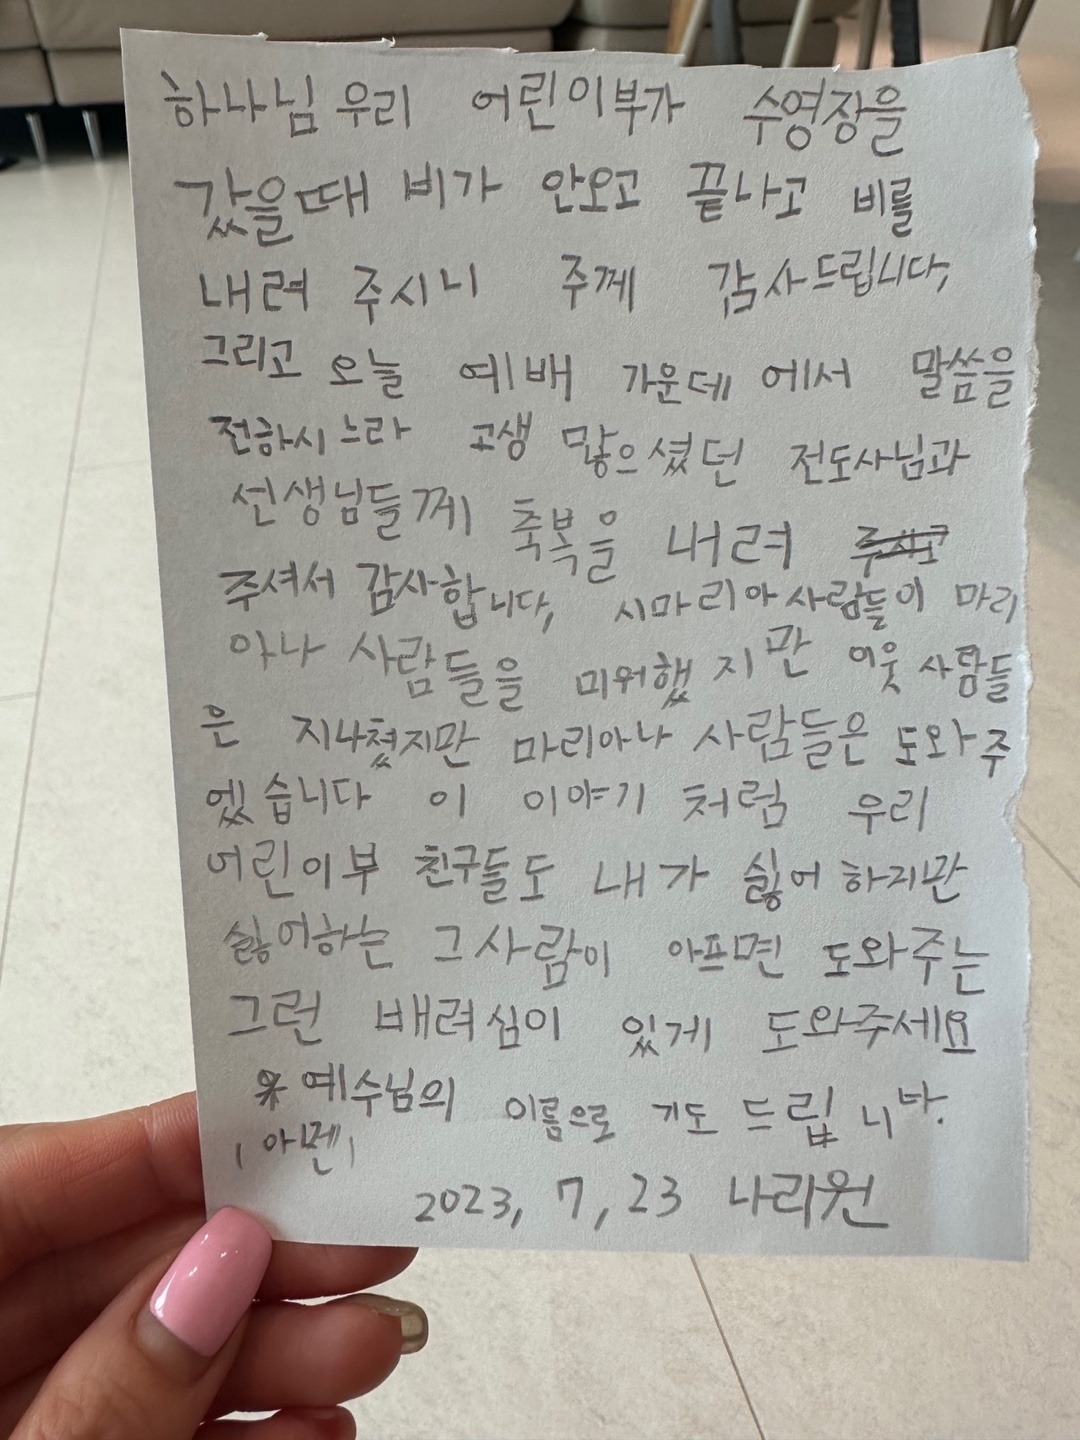 하나님 우리 어린이부가 수영장을
갔을때 비가 안오고 끝나고 비를
내려 주시니 주께 감사드립니다,
그리고 오늘 예배 가운데 에서 말씀을
전하시느라 고생 많으셨던 전도사님과
선생님들께 축복을 내려 주시고
주셔서 감사합니다, 시마리아 사람들이 마리
아나 사람들을 미워했지만 이웃 사람들
은 지나쳤지만 마리아나 사람들은 도와주
엤습니다 이 이야기 처럼 우리
어린이부 친구들도 내가 싫어 하지만
싫어하는 그사람이 아프면 도와주는
그런 배려심이 있게 도와주세요
※ 예수님의 이름으로 기도 드립니다.
(아멘)
2023, 7, 23 나리원